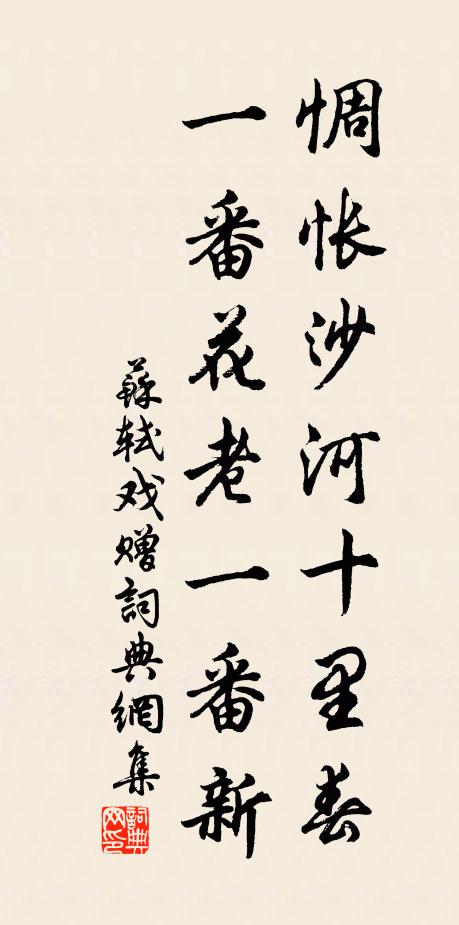 惆怅沙河十里春
一番花老一番新
蘇軾戏赠詞典網集
詞典
网印